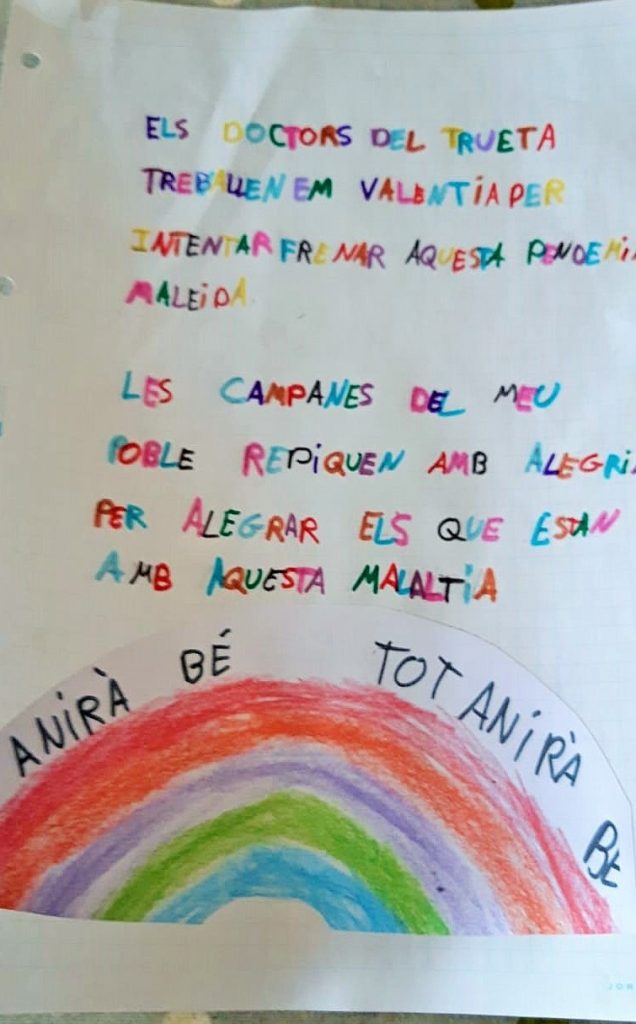 ELS DOCTORS DEL TRUETA
TREBALLEN EM VALENTIA PER
INTENTAR FRENAR AQUESTA PENDEMI
MALEIDA
LES CAMPANES DEL MEU
POBLE REPIQUEN AMB ALEGRI
PER ALEGRAR ELS QUE ESTAN
AMB AQUESTA MALALTIA
ANIRÀ BÉ TOT ANIRÀ BE